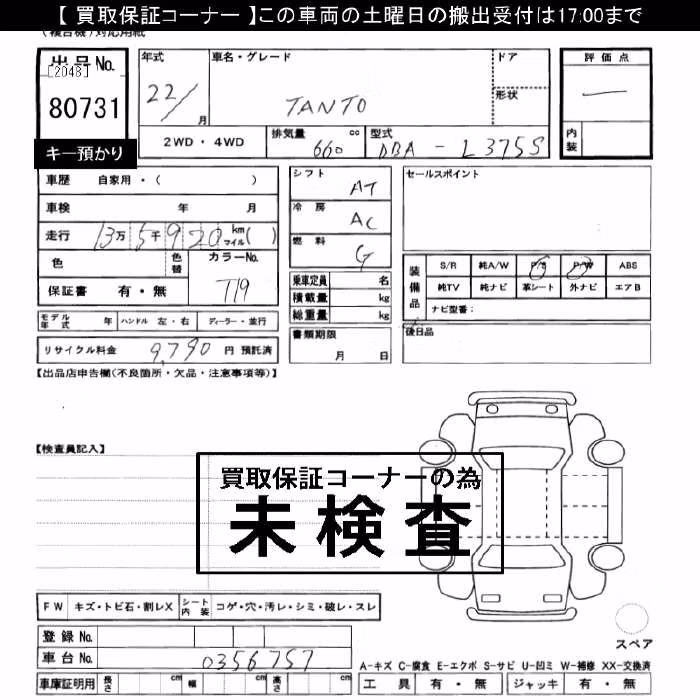 【 買取保証コーナー 】この車両の土曜日の搬出受付は17:00まで
(複合機)対応用紙
出品No.
[2048]
80731
キー預かり
年式
22/
月
車名・グレード
TANTO
ドア
形状
評価点
内装
2WD・4WD
排気量
660
cc
型式
DBA - L375S
車歴 自家用・( )
車検 年 月
走行 13万5千920 km マイル( )
色
色替
カラーNo.
T19
保証書 有・無
モデル年式 年 ハンドル 左・右 ディーラー・並行
リサイクル料金 9,790 円 預託済
シフト AT
冷房 AC
燃料 G
乗車定員 名
積載量 kg
総重量 kg
書類期限
月 日
セールスポイント
装備品
S/R 純A/W P/S P/W ABS
純TV 純ナビ 革シート 外ナビ エアB
ナビ型番:
後日品
【出品店申告欄(不良箇所・欠品・注意事項等)】
【検査員記入】
買取保証コーナーの為
未検査
FW キズ・トビ石・割レX シート内装 コゲ・穴・汚レ・シミ・破レ・スレ
登録No.
車台No. 0356757
車庫証明用 長さ cm 幅 cm 高さ cm
スペア
A-キズ C-腐食 E-エクボ S-サビ U-凹ミ W-補修 XX-交換済
工具 有・無 ジャッキ 有・無